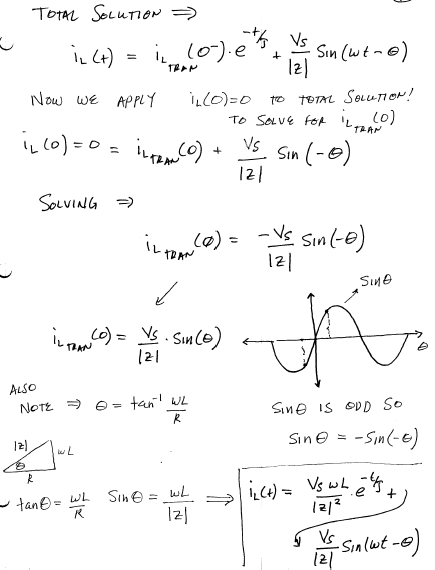 TOTAL SOLUTION ⇒
i_L(t) = i_L TRAN (0⁻) · e^(-t/τ) + Vs/|z| Sin(wt - θ)
NOW WE APPLY i_L(0)=0 TO TOTAL SOLUTION!
TO SOLVE FOR i_L TRAN (0)
i_L(0) = 0 = i_L TRAN (0) + Vs/|z| Sin(-θ)
SOLVING ⇒
i_L TRAN (0) = -Vs/|z| Sin(-θ)
i_L TRAN (0) = Vs/|z| · Sin(θ)
Sinθ
θ
ALSO
NOTE ⇒ θ = tan⁻¹ wL/R
Sinθ IS ODD SO
Sinθ = -Sin(-θ)
|z|
wL
θ
R
tanθ = wL/R Sinθ = wL/|z| ⇒
i_L(t) = Vs wL/|z|² · e^(-t/τ) +
Vs/|z| Sin(wt - θ)